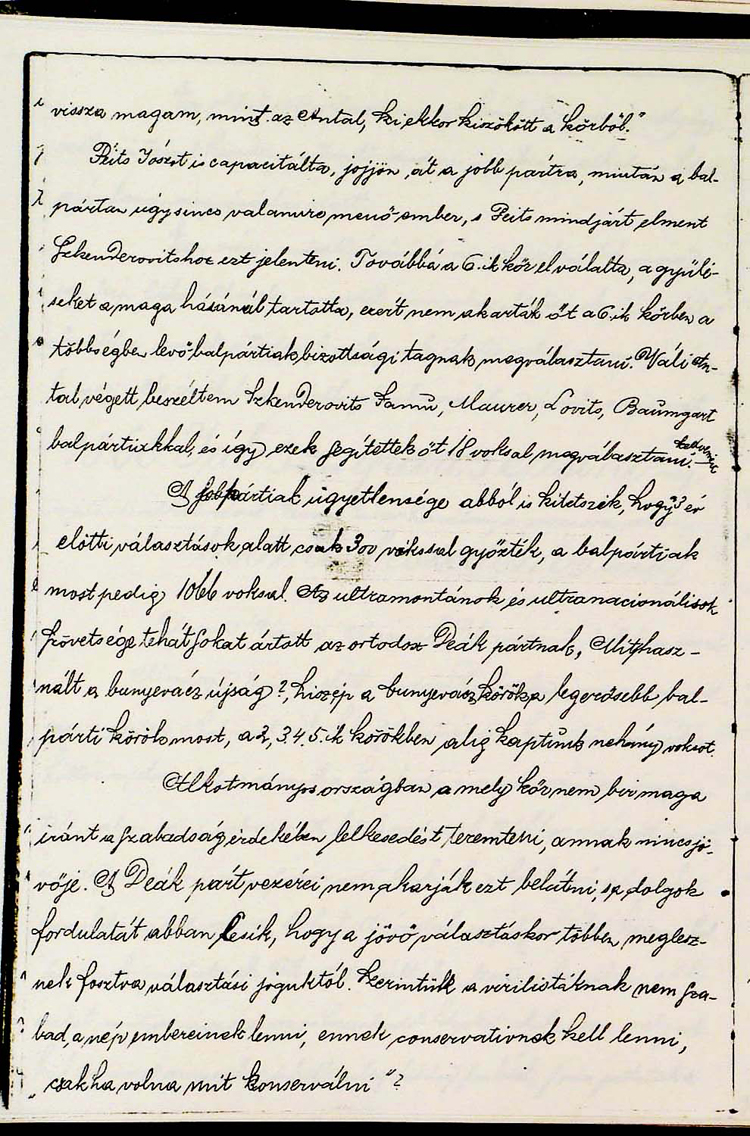 vissza magam, mint az Antal, ki ekkor kizökött a körből."
Peits Józsot is capacitálta, jojjön át a jobb pártra, miután a bal-
pártan úgysincs valamire menő ember, s Peits mindjárt elment
Szkenderovitshoz ezt jelenteni. Továbbá a 6.ik kör elválalta, a gyűlé-
seket a maga házánál tartotta, ezért nem akarták őt a 6.ik körben a
többségben levő balpártiak bizottsági tagnak megválasztani. Váli An-
tal végett beszéltem Szkenderovits Samu, Maurer, Lovits, Baumgart
balpártiakkal, és így ezek segítettek őt 18 voksal megválasztani.
A jobbpártiak ügyetlensége abból is kitetszik, hogy 3 év
előtti választások alatt csak 300 vokssal győzték, a balpártiak
most pedig 1066 voksal. Az ultramontánok és ultranacionálisok
szövetsége tehát sokat ártott az ortodox Deák pártnak, Mit hasz-
nált a bunyevácz újság?, hiszép a bunyevácz körök a legerősebb bal-
párti körök most, a 2, 3. 4. 5. ik körökben alig kaptunk nehány voksot.
Alkotmányos országban a mely kör nem bir maga
iránt a szabadság érdekében lelkesedést teremteni, annak nincs jö-
vője. A Deák párt vezérei nem akarják ezt belátni, s a dolgok
fordulatát abban lesik, hogy a jövő választáskor többen meglesz-
nek fosztva választási joguktól. Szerintük a virilistáknak nem sza-
bad a nép embereinek lenni, ennek conservativnek kell lenni,
„csak ha volna mit konserválni"?